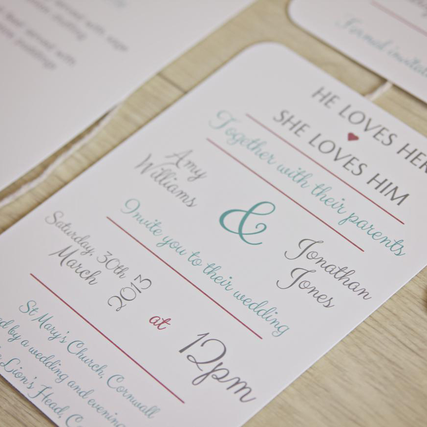 HE LOVES HER
SHE LOVES HIM
Together with their parents
Amy
Williams
&
Jonathan
Jones
Invite you to their wedding
Saturday, 30th
March
2013
at
12pm
St Mary's Church, Cornwall
by a wedding and evening
Lion's Head, C
served with
Formal invitat